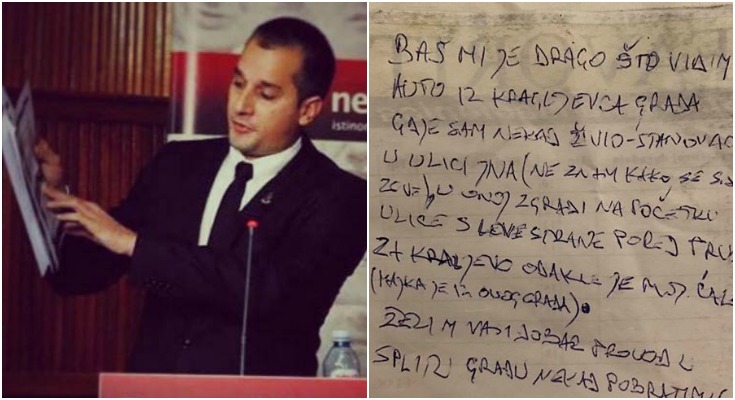 ne
istinor
BAŠ MI JE DRAGO ŠTO VIDIM
AUTO IZ KRAGUJEVCA GRADA
GDJE SAM NEKAD ŽIVIO-STANOVAO
U ULICI JNA (NE ZNAM KAKO SE SA
ZOVE) U ONOJ ZGRADI NA POČETKU
ULICE S LEVE STRANE PORED PRU
ZA KRALJEVO ODAKLE JE MOJ ĆAL
(MAJKA JE IZ OVOG GRADA).
ŽELIM VAM DOBAR PROVOD U
SPLITU GRADU NEKAD POBRATIM